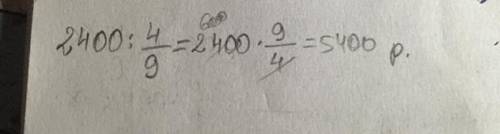 2400 : 4/9 = 2400 · 9/4 = 5400 р.
600